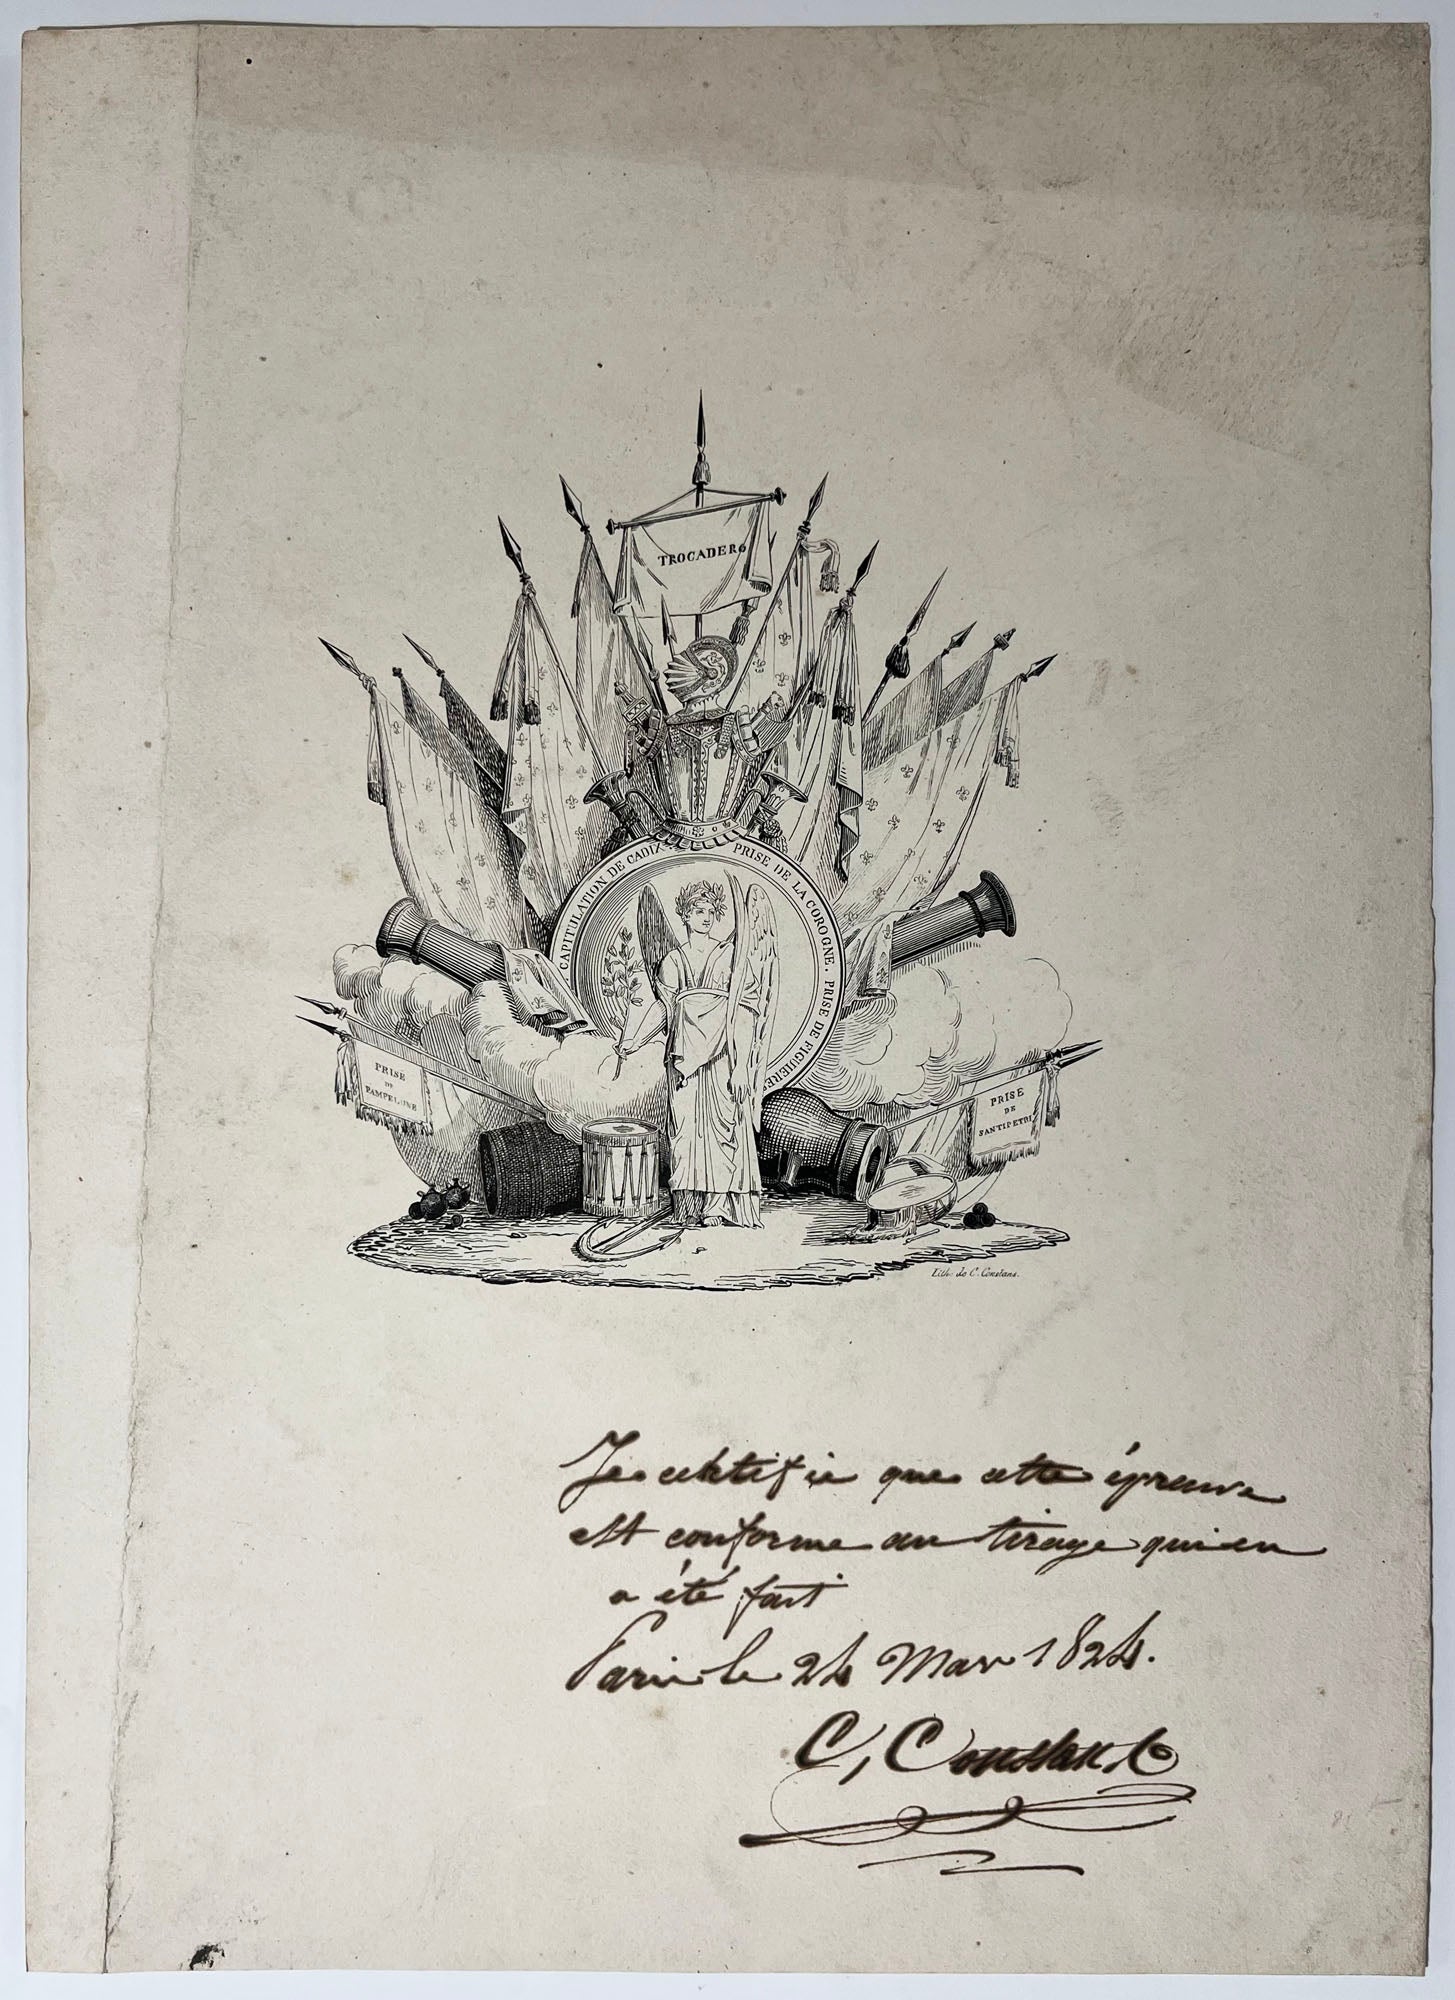 TROCADERO
CAPITULATION DE CADIX
PRISE DE LA COROGNE. PRISE DE FIGUIERES
PRISE
DE
PAMPELUNE
PRISE
DE
SANTIPETRI
Lith. de C. Constans.
Je certifie que cette épreuve
est conforme au tirage qui en
a été fait
Paris le 24 Mars 1824.
C, Constans